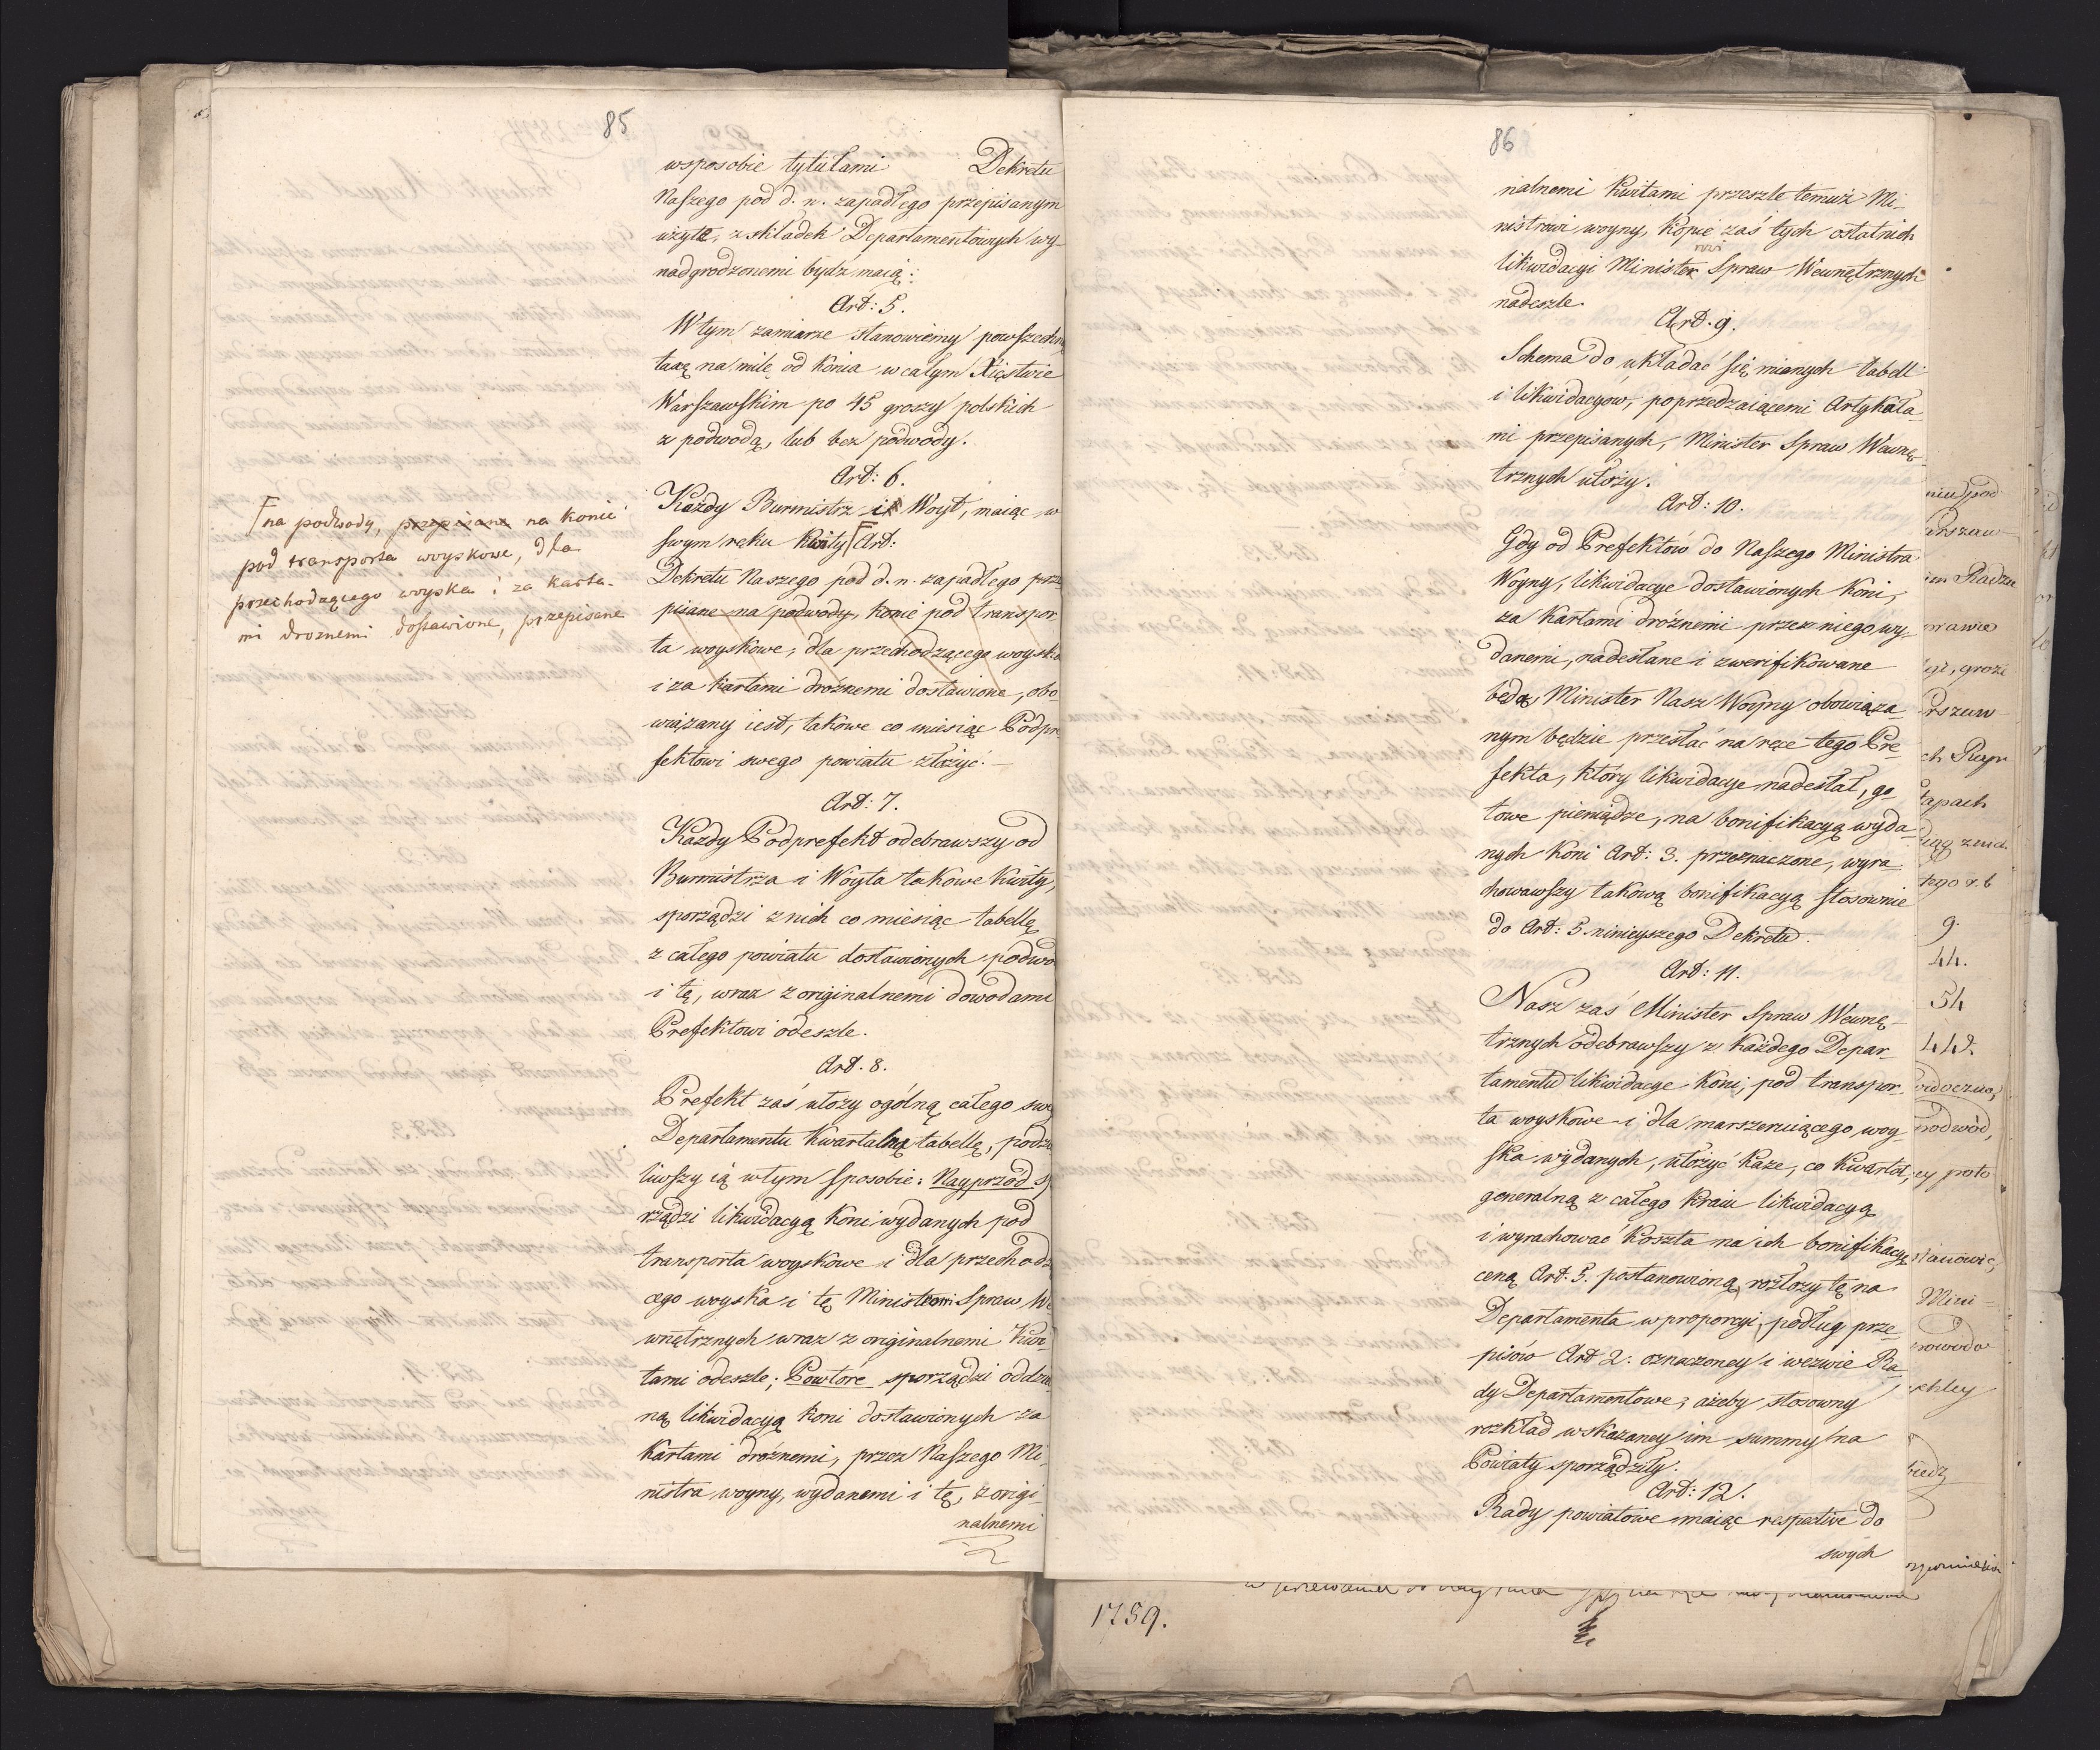 85
wsposobie tytułami Dekretu
Naszego pod d. n. zapadłego przepisanym
użyte, z składek Departamentowych wy-
nadgrodzonemi bydź maią:
Art: 5.
W tym zamiarze stanowiemy powszechną
taxę na milę od konia w całym Xięstwie
Warszawskim po 45 groszy polskich
z podwodą, lub bez podwody.
Art: 6.
Każdy Burmistrz i Woyt, maiąc w
swym ręku kwity Art:
Dekretu Naszego pod d. n. zapadłego prze
pisane na podwody, konie pod transpor
ta woyskowe, dla przechodzącego woyska
i za kartami drożnemi dostawione, obo
wiązany iest, takowe co miesiąc Podpre
fektowi swego powiatu złożyć.
na podwody, przepisane na konie
pod transporta woyskowe, dla
przechodzącego woyska i za karta-
mi drożnemi dostawione, przepisane
Art: 7.
Każdy Podprefekt odebrawszy od
Burmistrza i Woyta takowe kwity,
sporządzi z nich co miesiąc tabellę
z całego powiatu dostawionych podwo
i tę, wraz z originalnemi dowodami
Prefektowi odeszle.
Art. 8.
Prefekt zaś ułoży ogólną całego swe
Departamentu Kwartalną tabellę, podzie
liwszy ią w tym sposobie: Nayprzod s
rządzi likwidacyą koni wydanych pod
transporta woyskowe i dla przechodzą
cego woyska i tę Ministrowi Spraw We
wnętrznych wraz z originalnemi Kwi-
tami odeszle; Powtore sporządzi oddziel
ną likwidacyą koni dostawionych za
Kartami drożnemi, przez Naszego Mi-
nistra woyny, wydanemi i tę, z origi-
nalnemi
86
nalnemi Kwitami przeszle temuż Mi-
nistrowi woyny, kopie zaś tych ostatnich
likwidacyi Minister Spraw Wewnętrznych
nadeszle.
Art. 9.
Schema do układać się mianych tabell
i likwidacyow, poprzedzaiącemi Artykuła
mi przepisanych, Minister Spraw Wewnę-
trznych ułoży.
Art: 10.
Gdy od Prefektow do Naszego Ministra
Woyny, likwidacye dostawionych koni,
za Kartami drożnemi przez niego wy-
danemi, nadesłane i zwerifikowane
będą, Minister Nasz Woyny obowiąza-
nym będzie przesłać na ręce tego Pre-
fekta, który likwidacye nadesłał, go-
towe pieniądze, na bonifikacyą wyda-
nych koni Art: 3. przeznaczone, wyra
chowawszy takową bonifikacyą stosownie
do Art: 5. ninieyszego Dekretu.
Art: 11.
Nasz zaś Minister Spraw Wewnę-
trznych odebrawszy z każdego Depar-
tamentu likwidacye koni, pod transpor-
ta woyskowe i dla marszeruiącego woy-
ska wydanych, ułożyć każe, co kwartał,
generalną z całego kraiu likwidacyą
i wyrachować koszta na ich bonifikacyę
ceną Art: 5. postanowioną, rozłoży tę na
Departamenta w proporcyi, podług prze-
pisow Art 2. oznaczoney i wezwie Ra-
dy Departamentowe, ażeby stosowny
rozkład wskazaney im summy na
Powiaty sporządziły.
Art: 12.
Rady powiatowe maiąc respective do
swych
niu pod
Radzie
groszi
9.
44.
54
442.
1759.